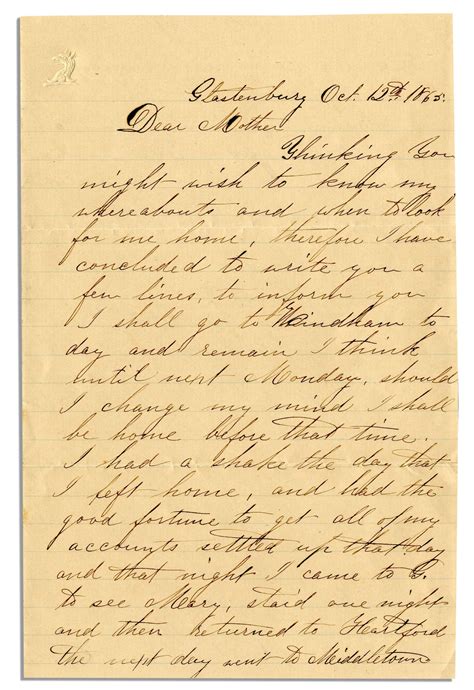 Glastenbury Oct. 12th. 1865.
Dear Mother
Thinking You
might wish to know my
whereabouts and when to look
for me home, therefore I have
concluded to write you a
few lines, to inform you
I shall go to Windham to
day and remain I think
until next Monday, should
I change my mind I shall
be home before that time.
I had a shake the day that
I left home, and had the
good fortune to get all of my
accounts settled up that day
and that night I came to G.
to see Mary, staid one night
and then returned to Hartford
the next day went to Middletown